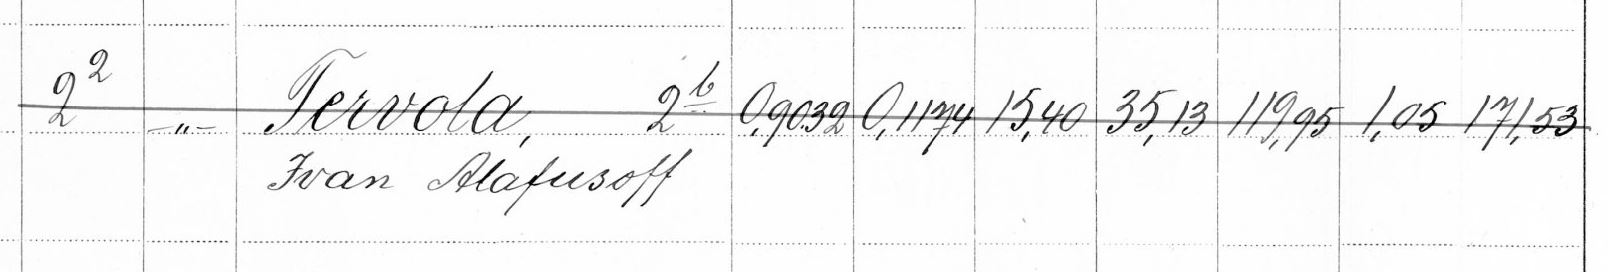 2² –„– Tervola, 2b 0,9032 0,1174 15,40 35,13 119,95 1,05 171,53
Ivan Alafusoff